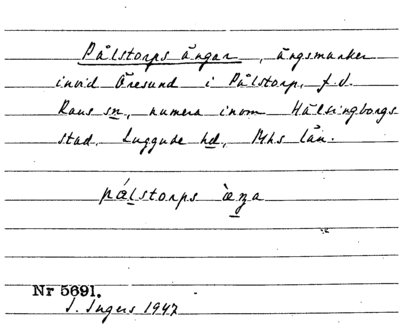 Pålstorps ängar, ängsmarker
invid Öresund i Pålstorp, f.d.
Raus sn, numera inom Hälsingborgs
stad. Luggude hd, Mhs län.
pálstorps
Nr 5691.
I. Ingers 1947